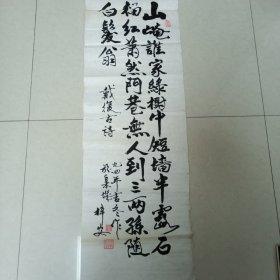 山崦誰家綠樹中短墻半露石
榴紅蕭然門巷無人到三兩孫隨
白髮翁
戴復古詩
九四年書